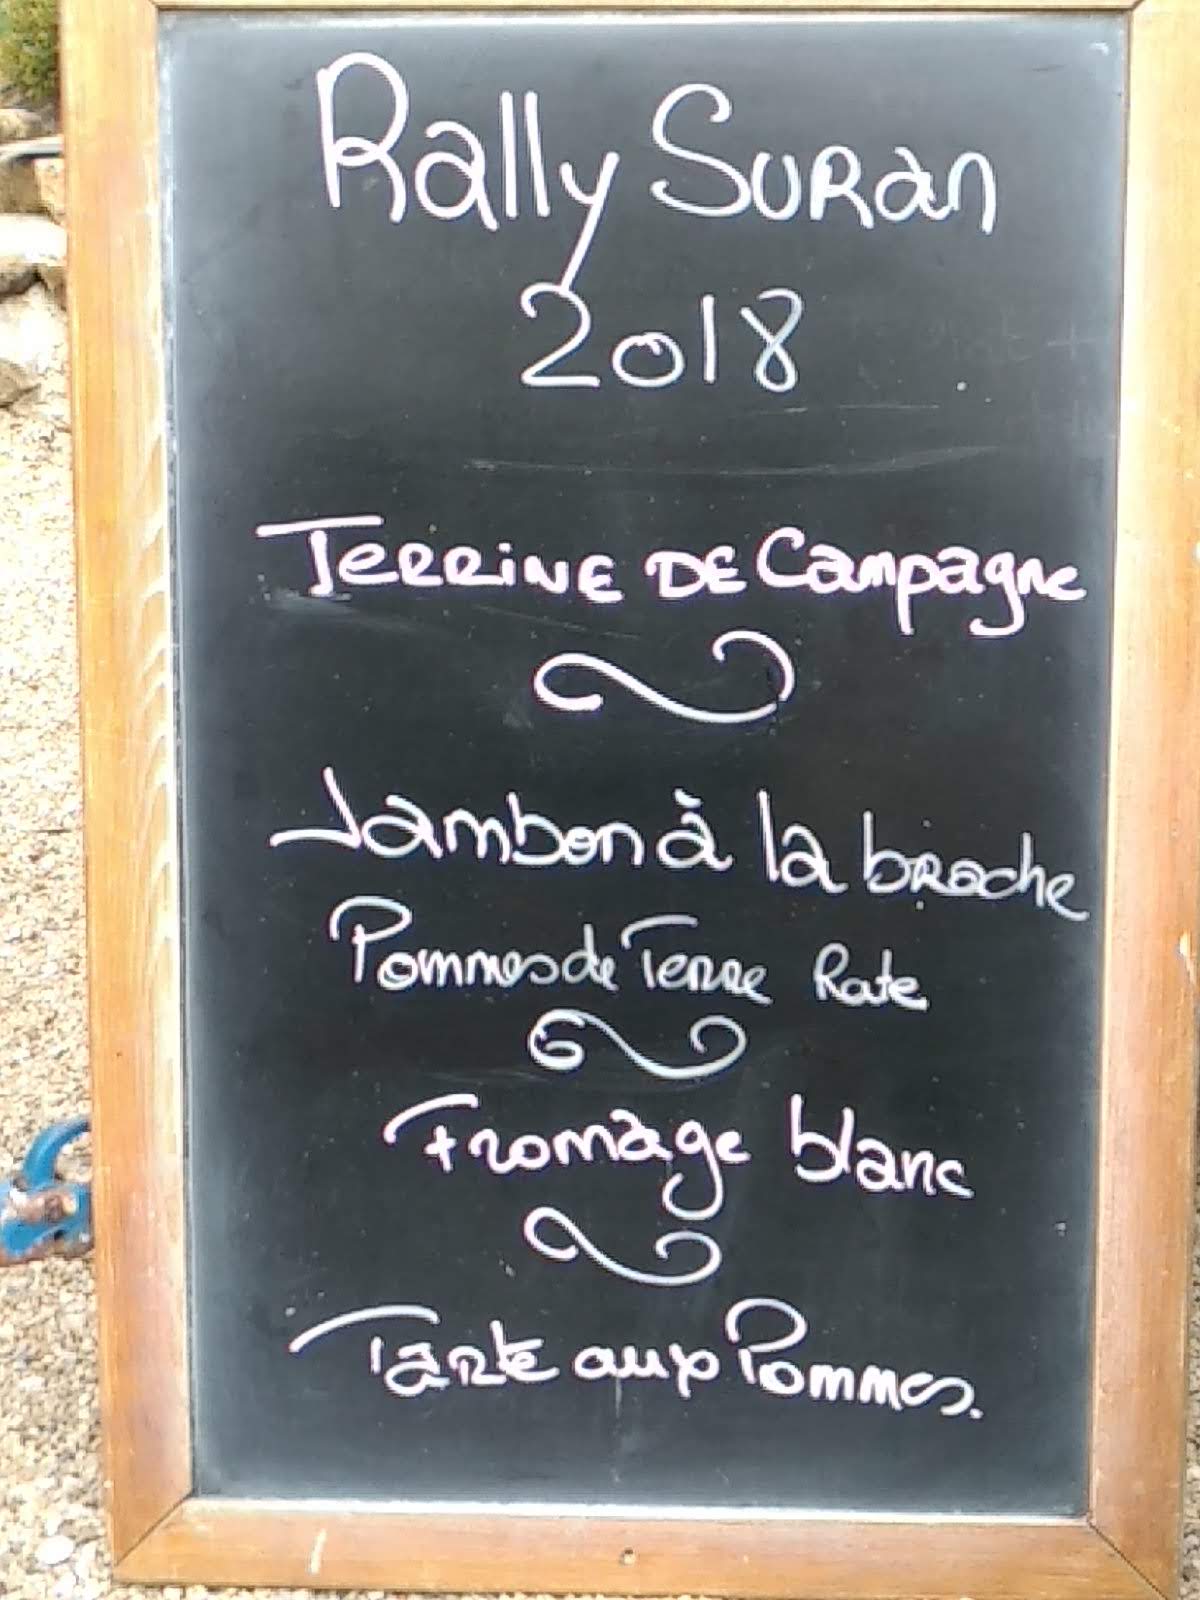 Rally Suran
2018
Terrine de Campagne
Jambon à la broche
Pommes de Terre Rate
Fromage blanc
Tarte aux Pommes.